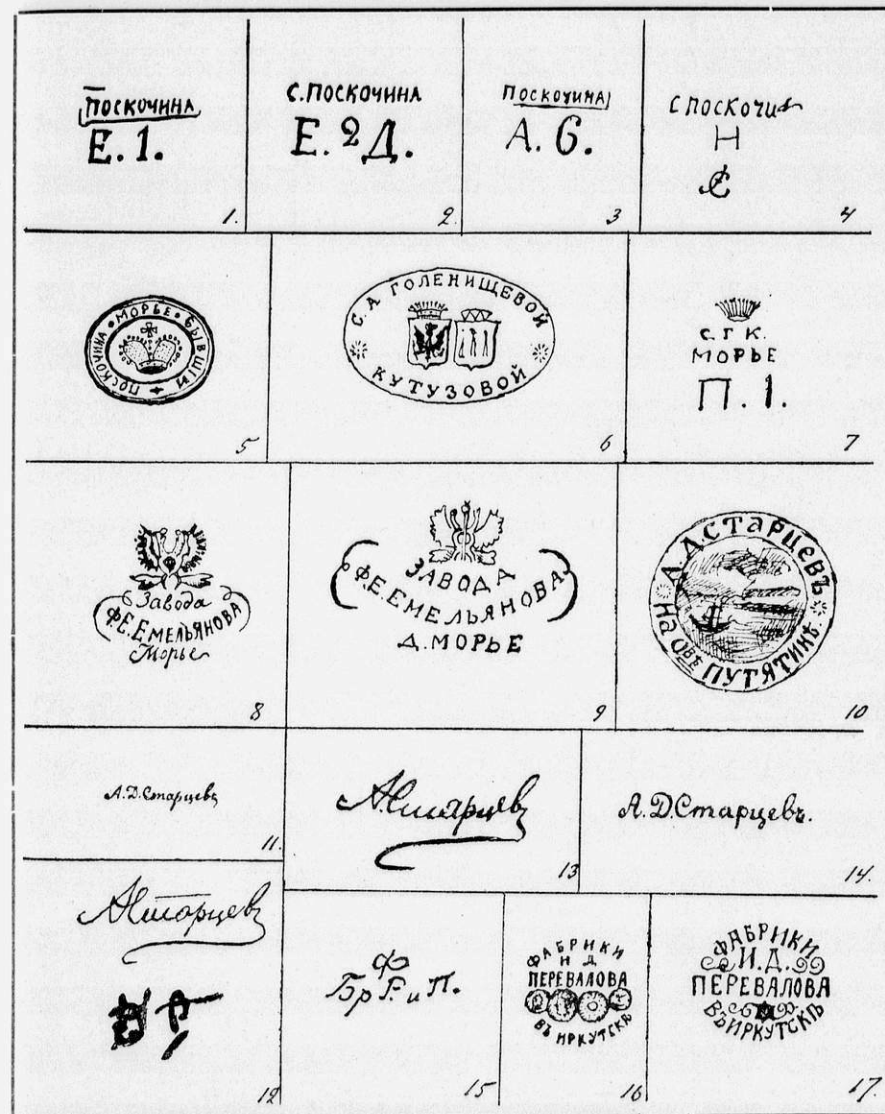 ПОСКОЧИНА
Е. 1.
1.
С. ПОСКОЧИНА
Е. 2 Д.
2.
ПОСКОЧИНА
А. 6.
3
С ПОСКОЧИ
Н
4
ПОСКОЧИНА • МОРЬЕ • БЫВШІИ
5
С. А ГОЛЕНИЩЕВОЙ
КУТУЗОВОЙ
6
С. Г К.
МОРЬЕ
П. 1.
7
Завода
Ф.Е. ЕМЕЛЬЯНОВА
Морье
8
ЗАВОДА
Ф.Е. ЕМЕЛЬЯНОВА
Д. МОРЬЕ
9
А.Д. СТАРЦЕВЪ
НА О-ВѢ ПУТЯТИНѢ.
10
А.Д. Старцевъ
11.
А Старцевъ
13
А.Д. Старцевъ.
14.
А Старцевъ
12
Ф
Бр Г. и П.
15
ФАБРИКИ
И Д
ПЕРЕВАЛОВА
ВЪ ИРКУТСКѢ
16
ФАБРИКИ
И. Д.
ПЕРЕВАЛОВА
ВЪ ИРКУТСКѢ
17.